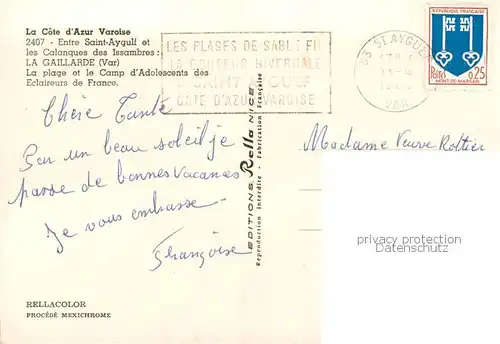 La Côte d'Azur Varoise
2407 - Entre Saint-Aygulf et
les Calanques des Issambres :
LA GAILLARDE (Var)
La plage et le Camp d'Adolescents des
Eclaireurs de France.
LES PLAGES DE SABLE FIN
LA DOUCEUR HIVERNALE
SAINT AYGULF
COTE D'AZUR VAROISE
83 ST AYGULF
VAR
REPUBLIQUE FRANÇAISE
Postes 0,25
MONT-DE-MARSAN
Chère Tante
Par un beau soleil je
passe de bonnes vacances
Je vous embrasse
Françoise
Madame Veuve Rottier
EDITIONS Rella NICE
Reproduction interdite - Fabrication Française
privacy protection
watermark
RELLACOLOR
PROCÉDÉ MEXICHROME